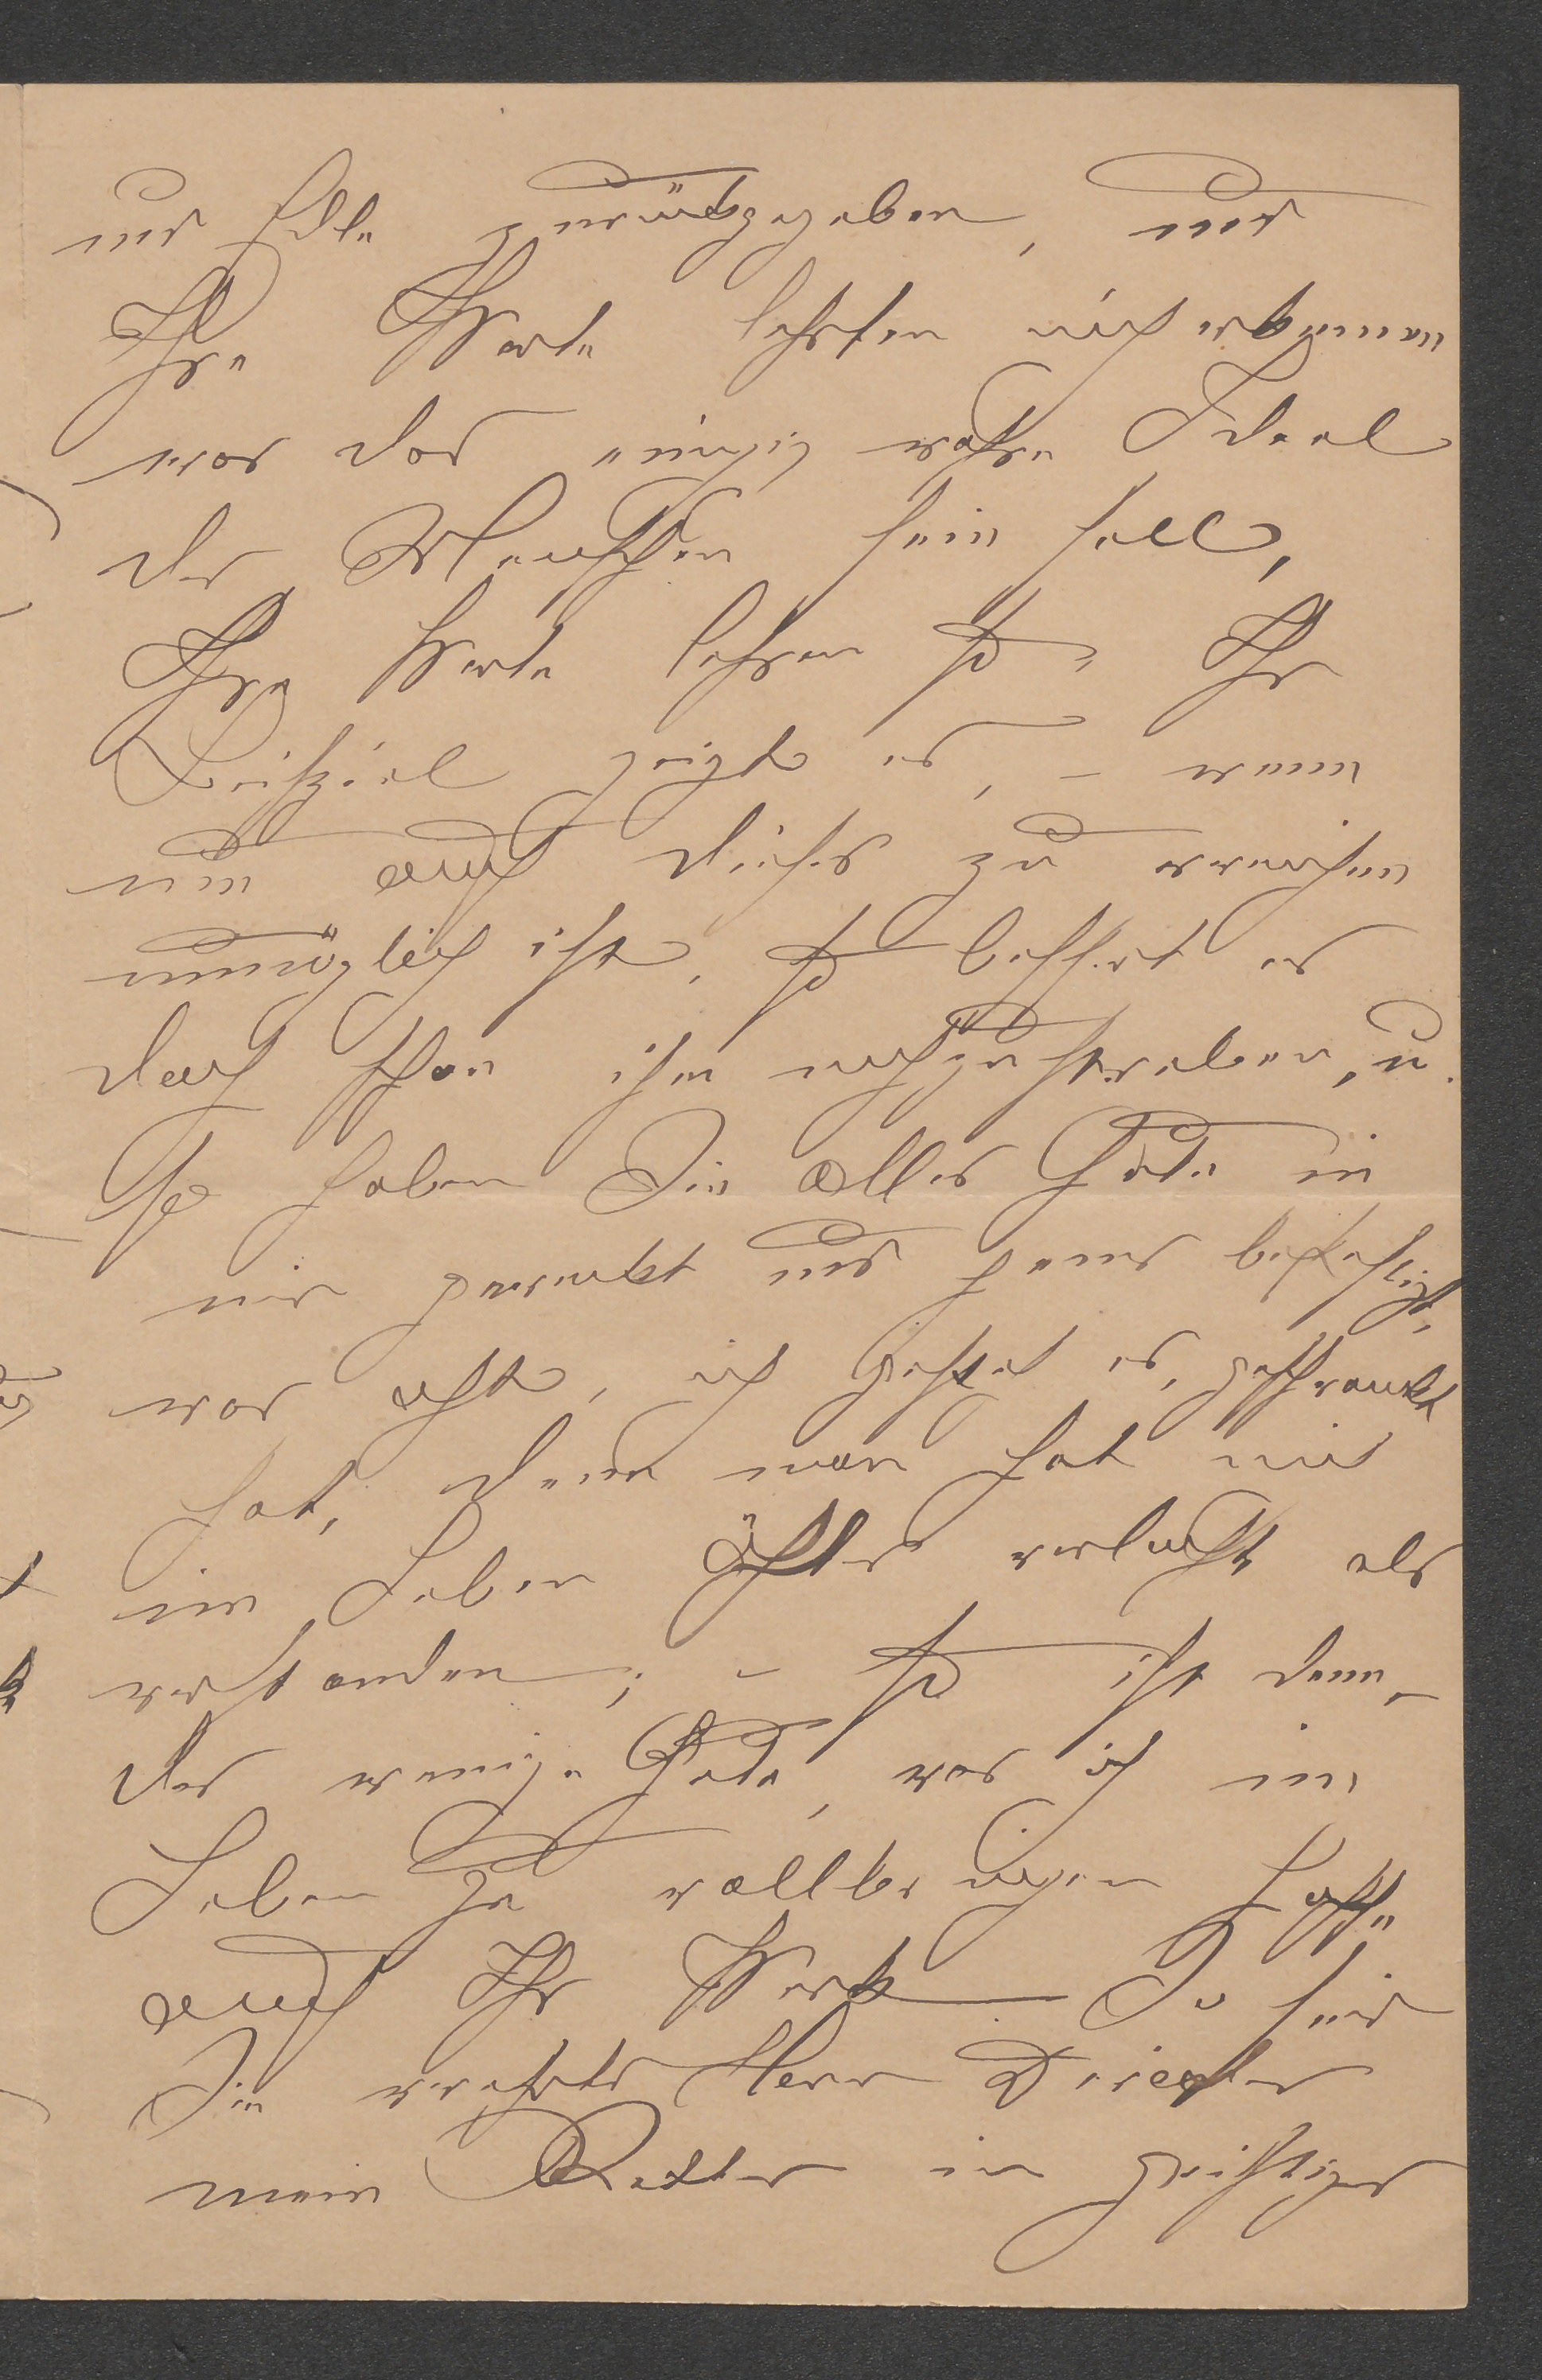 und Edle zurückgegeben, und
Ihre Worte lehrten mich erkennen
was das einzig wahre Ideal
des Menschen sein soll,
Ihre Worte lehren u Ihr
Beispiel zeigt es, – wenn
nun auch dieses zu erreichen
unmöglich ist, so bessert es
doch schon ihm nachzustreben, u.
so haben Sie alles Gute in
mir geweckt und jenes befestigt,
was oft, ich gestehe es, geschwankt
hat, denn man hat mich
im Leben öfters verlacht als
verstanden; – so ist denn,
das wenige Gute, was ich im
Leben zu vollbringen hoffe
auch Ihr Werk – So sind
Sie verehrter Herr Director
mein Retter in geistiger